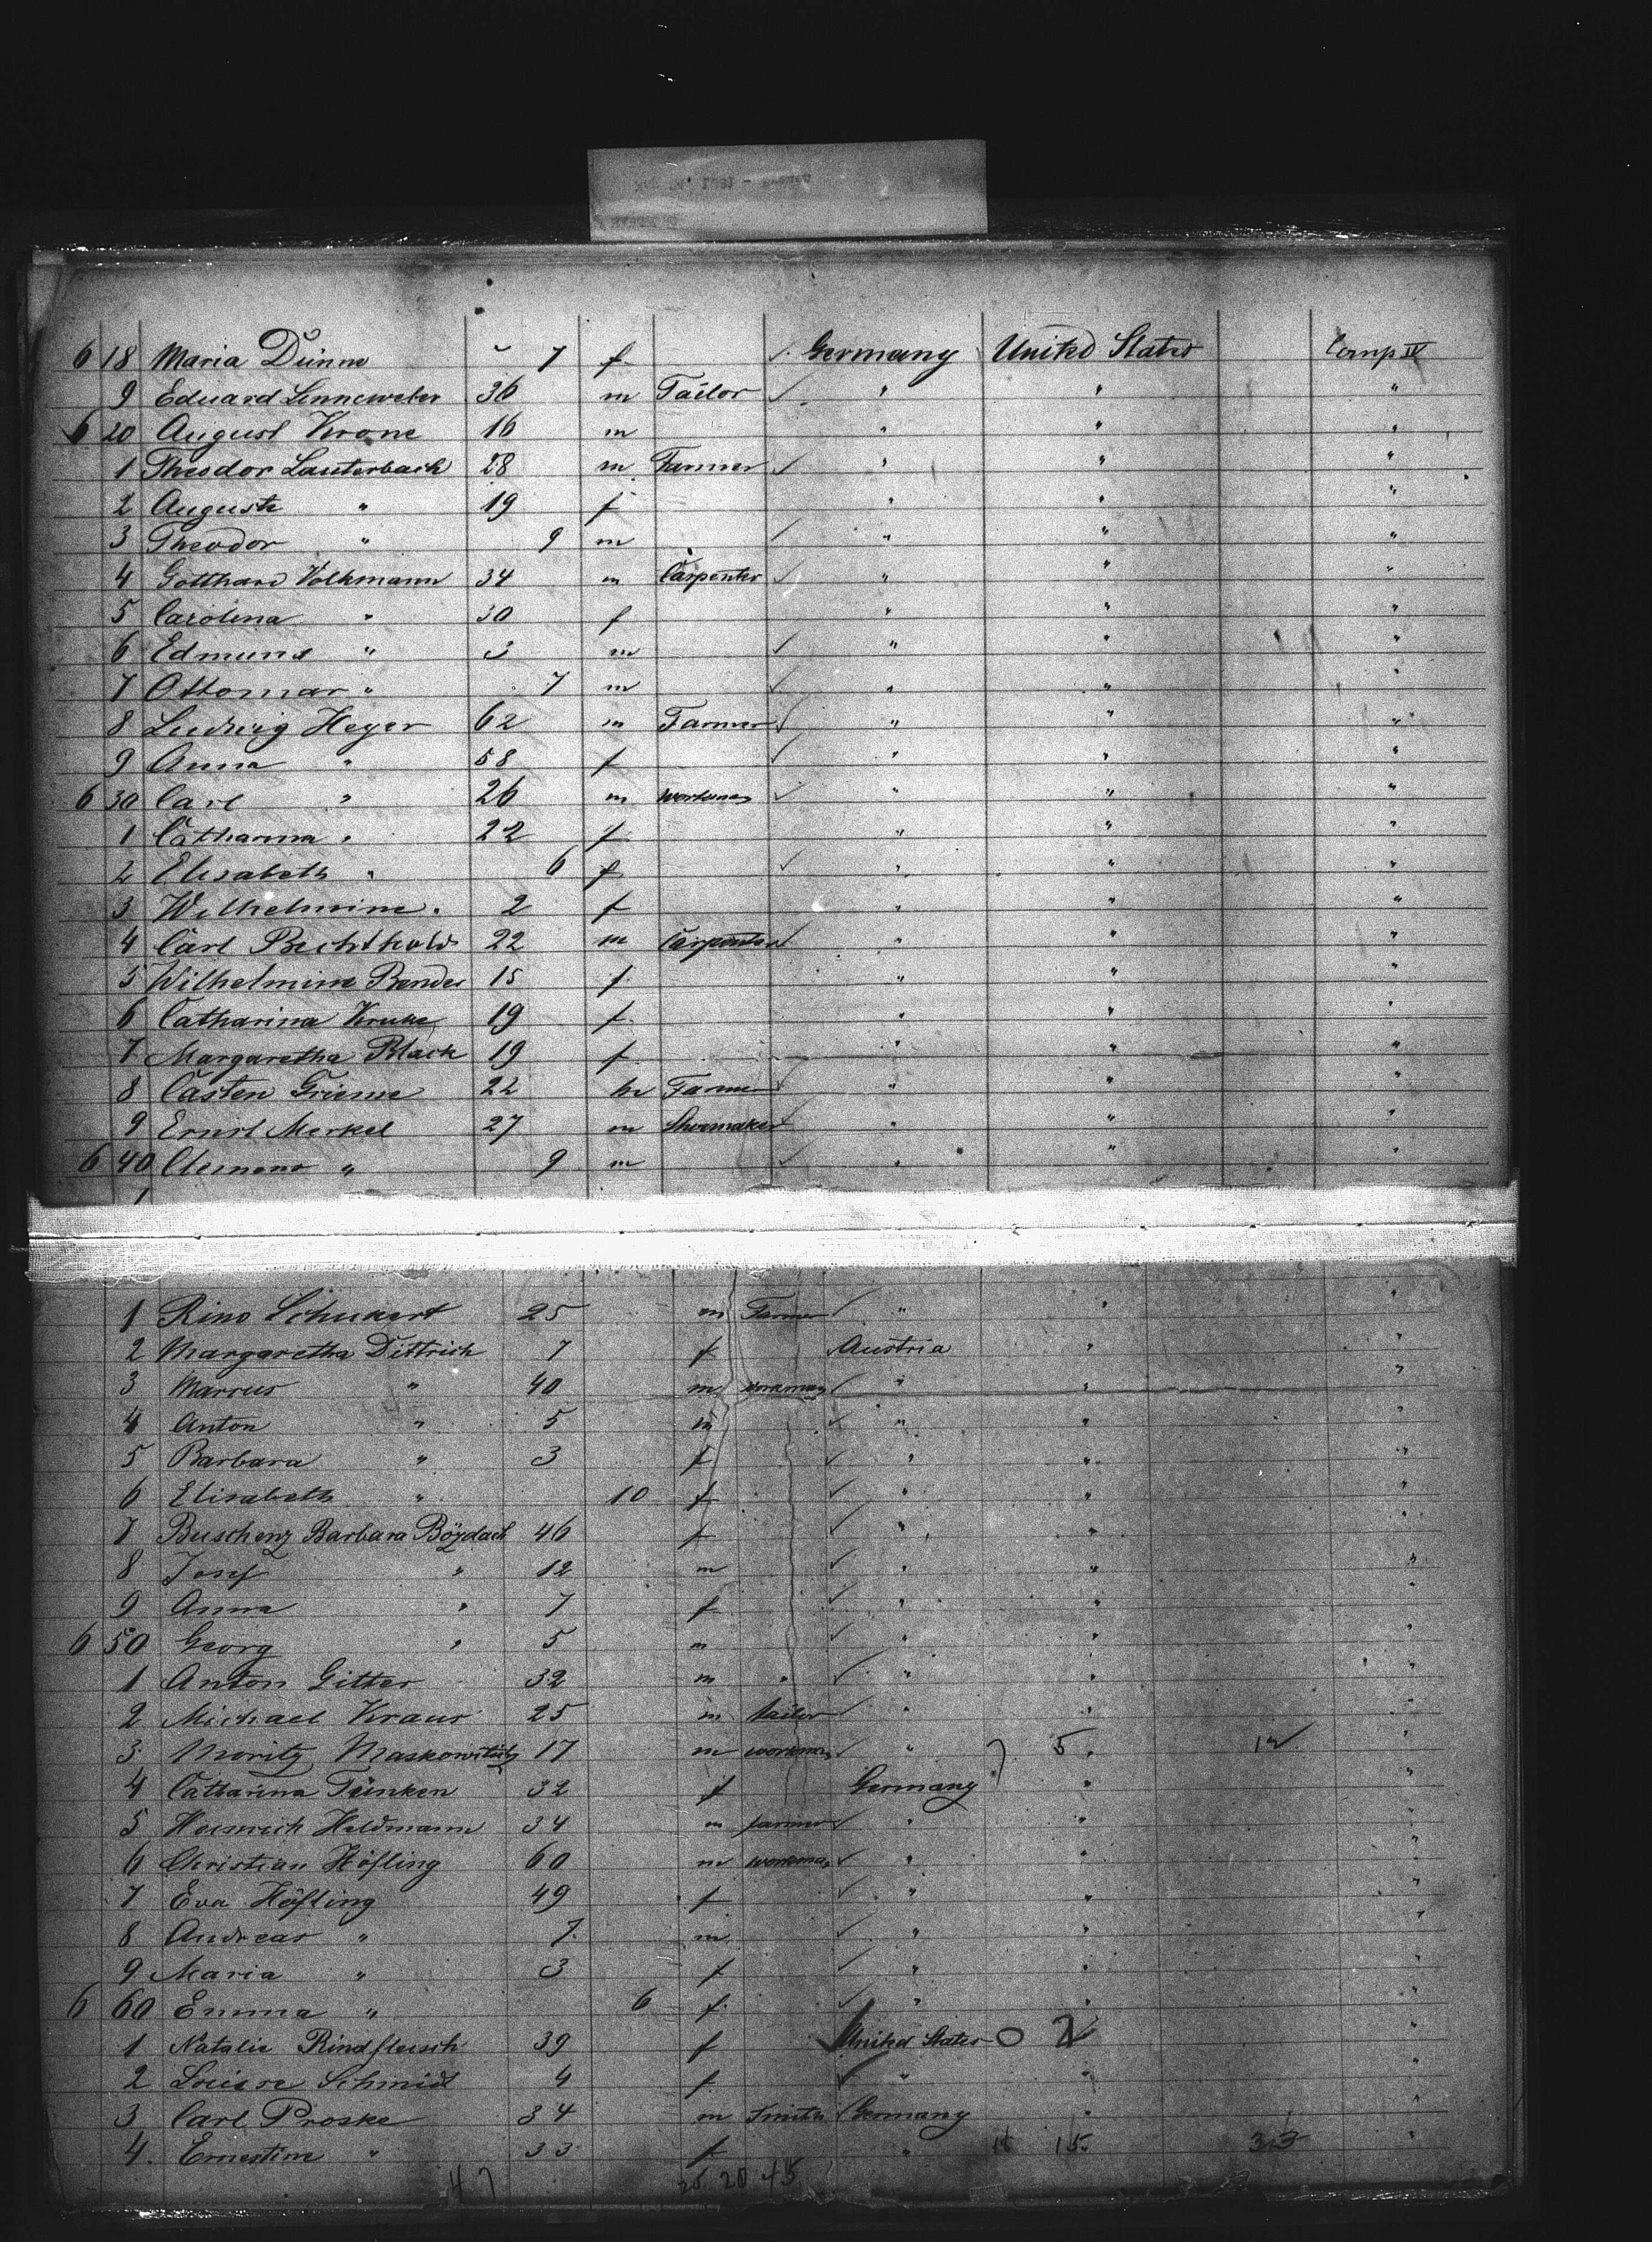 6 18 Maria Dünne 7 f Germany United States Comp IV
9 Eduard Linneweber 36 m Tailor " " "
6 20 August Krone 16 m " " "
1 Theodor Lauterbach 28 m Farmer " " "
2 Auguste " 19 f " " "
3 Theodor " 9 m " " "
4 Gotthard Volkmann 34 m Carpenter " " "
5 Carolina " 30 f " " "
6 Edmund " 3 m " " "
7 Ottomar " 7 m " " "
8 Ludwig Heyer 62 m Farmer " " "
9 Anna " 58 f " " "
6 30 Carl " 26 m workman " " "
1 Catharina " 22 f " " "
2 Elisabeth " 6 f " " "
3 Wilhelmine " 2 f " " "
4 Carl Bechthold 22 m Carpenter " " "
5 Wilhelmine Bender 15 f " " "
6 Catharina Kruke 19 f " " "
7 Margaretha Black 19 f " " "
8 Casten Grieme 22 m Farmer " " "
9 Ernst Merkel 27 m Shoemaker " " "
6 40 Clemens " 9 m " " "
1 Rino Schukert 25 m Farmer " " "
2 Margaretha Dittrich 7 f Austria " "
3 Marcus " 40 m workman " " "
4 Anton " 5 m " " "
5 Barbara " 3 f " " "
6 Elisabeth " 10 f " " "
7 Buschenz Barbara Böydach 46 f " " "
8 Josef " 12 m " " "
9 Anna " 7 f " " "
6 50 Georg " 5 m " " "
1 Anton Gitter 32 m " " " "
2 Michael Kraus 25 m tailor " " "
3 Moritz 17 m workman " 5. 12 "
4 Catharina Tünken 32 f Germany " "
5 Heinrich Heldmann 34 m farmer " " "
6 Christian Höfling 60 m workman " " "
7 Eva Höfling 49 f " " "
8 Andreas " 7 m " " "
9 Maria " 3 f " " "
6 60 Emma " 6 f " " "
1 Natalie Rindfleisch 39 f United States 0 2 "
2 Louise Schmidt 4 f " " "
3 Carl Proske 34 m Smith Germany " "
4. Ernestine " 33 f " 15 33 "
47 25 20 45